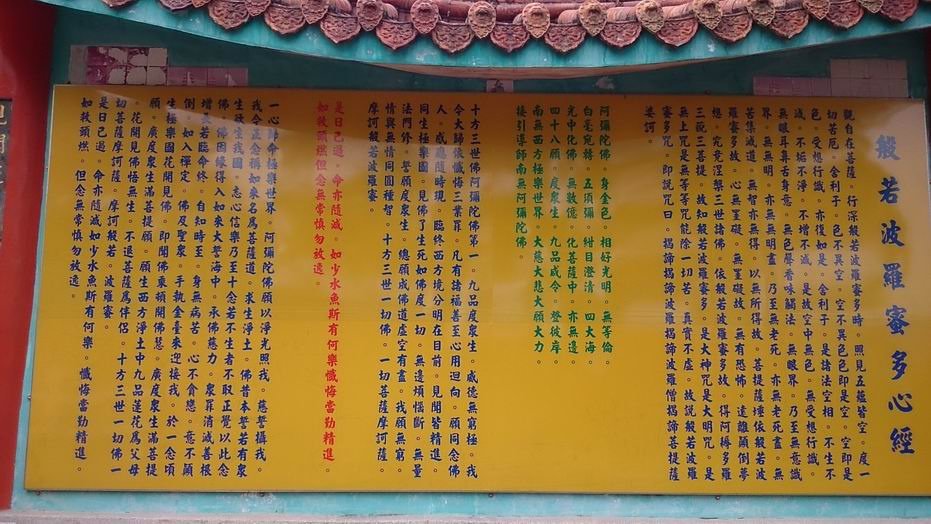 般若波羅蜜多心經
觀自在菩薩。行深般若波羅蜜多時。照見五蘊皆空。度一
切苦厄。舍利子。色不異空。空不異色。色即是空。空即是
色。受想行識。亦復如是。舍利子。是諸法空相。不生不
滅。不垢不淨。不增不減。是故空中無色。無受想行識。
無眼耳鼻舌身意。無色聲香味觸法。無眼界。乃至無意識
界。無無明。亦無無明盡。乃至無老死。亦無老死盡。無
苦集滅道。無智亦無得。以無所得故。菩提薩埵依般若波
羅蜜多故。心無罣礙。無罣礙故。無有恐怖。遠離顛倒夢
想。究竟涅槃三世諸佛。依般若波羅蜜多故。得阿耨多羅
三藐三菩提。故知般若波羅蜜多。是大神咒是大明咒。是
無上咒是無等等咒能除一切苦。真實不虛。故說般若波羅
蜜多咒。即說咒曰。揭諦揭諦波羅揭諦波羅僧揭諦菩提薩
婆訶。
阿彌陀佛。身金色。相好光明。無等倫。
白毫宛轉。五須彌。紺目澄清。四大海。
光中化佛。無數億。化菩薩中。亦無邊。
四十八願度眾生。九品咸令。登彼岸。
南無西方極樂世界。大慈大悲大願大力。
接引導師南無阿彌陀佛。
十方三世佛阿彌陀佛第一。九品度眾生。威德無窮極。我
今大歸依懺悔三業罪。凡有諸福善至心用迴向。願同念佛
人。感應隨時現。臨終西方境分明在目前。見聞皆精進。
同生極樂國。見佛了生死如佛度一切。無邊煩惱斷。無量
法門修。誓願度眾生。總願成佛道虛空有盡。我願無窮。
情與無情同圓種智。十方三世一切佛。一切菩薩摩訶薩。
摩訶般若波羅蜜。
是日已過。命亦隨減。如少水魚斯有何樂懺悔當勤精進。
如救頭燃但念無常慎勿放逸。
一心歸命極樂世界。阿彌陀佛願以淨光照我。慈誓攝我。
我今正念稱如來名為菩提道。求生淨土。佛昔本誓若有眾
生欲生我國。志心信樂乃至十念若不生者不取正覺以此念
佛。佛因緣得入如來大誓海中。承佛慈力。眾罪消滅善根
增長若臨命終。自知時至。身無病苦。心不貪戀。意不顛
倒。如入禪定。佛及聖眾。手執金臺來迎接我。於一念頃
生極樂國花開見佛。即聞佛乘頓開佛慧。廣度眾生滿菩提
願。廣度眾生滿菩提願。願生西方淨土中九品蓮花為父母
。花開見佛悟無生。不退菩薩為伴侶。十方三世一切佛一
切菩薩摩訶薩。摩訶般若。波羅蜜。
是日已過。命亦隨減如少水魚斯有何樂。懺悔當勤精進。
如救頭燃。但念無常慎勿放逸。